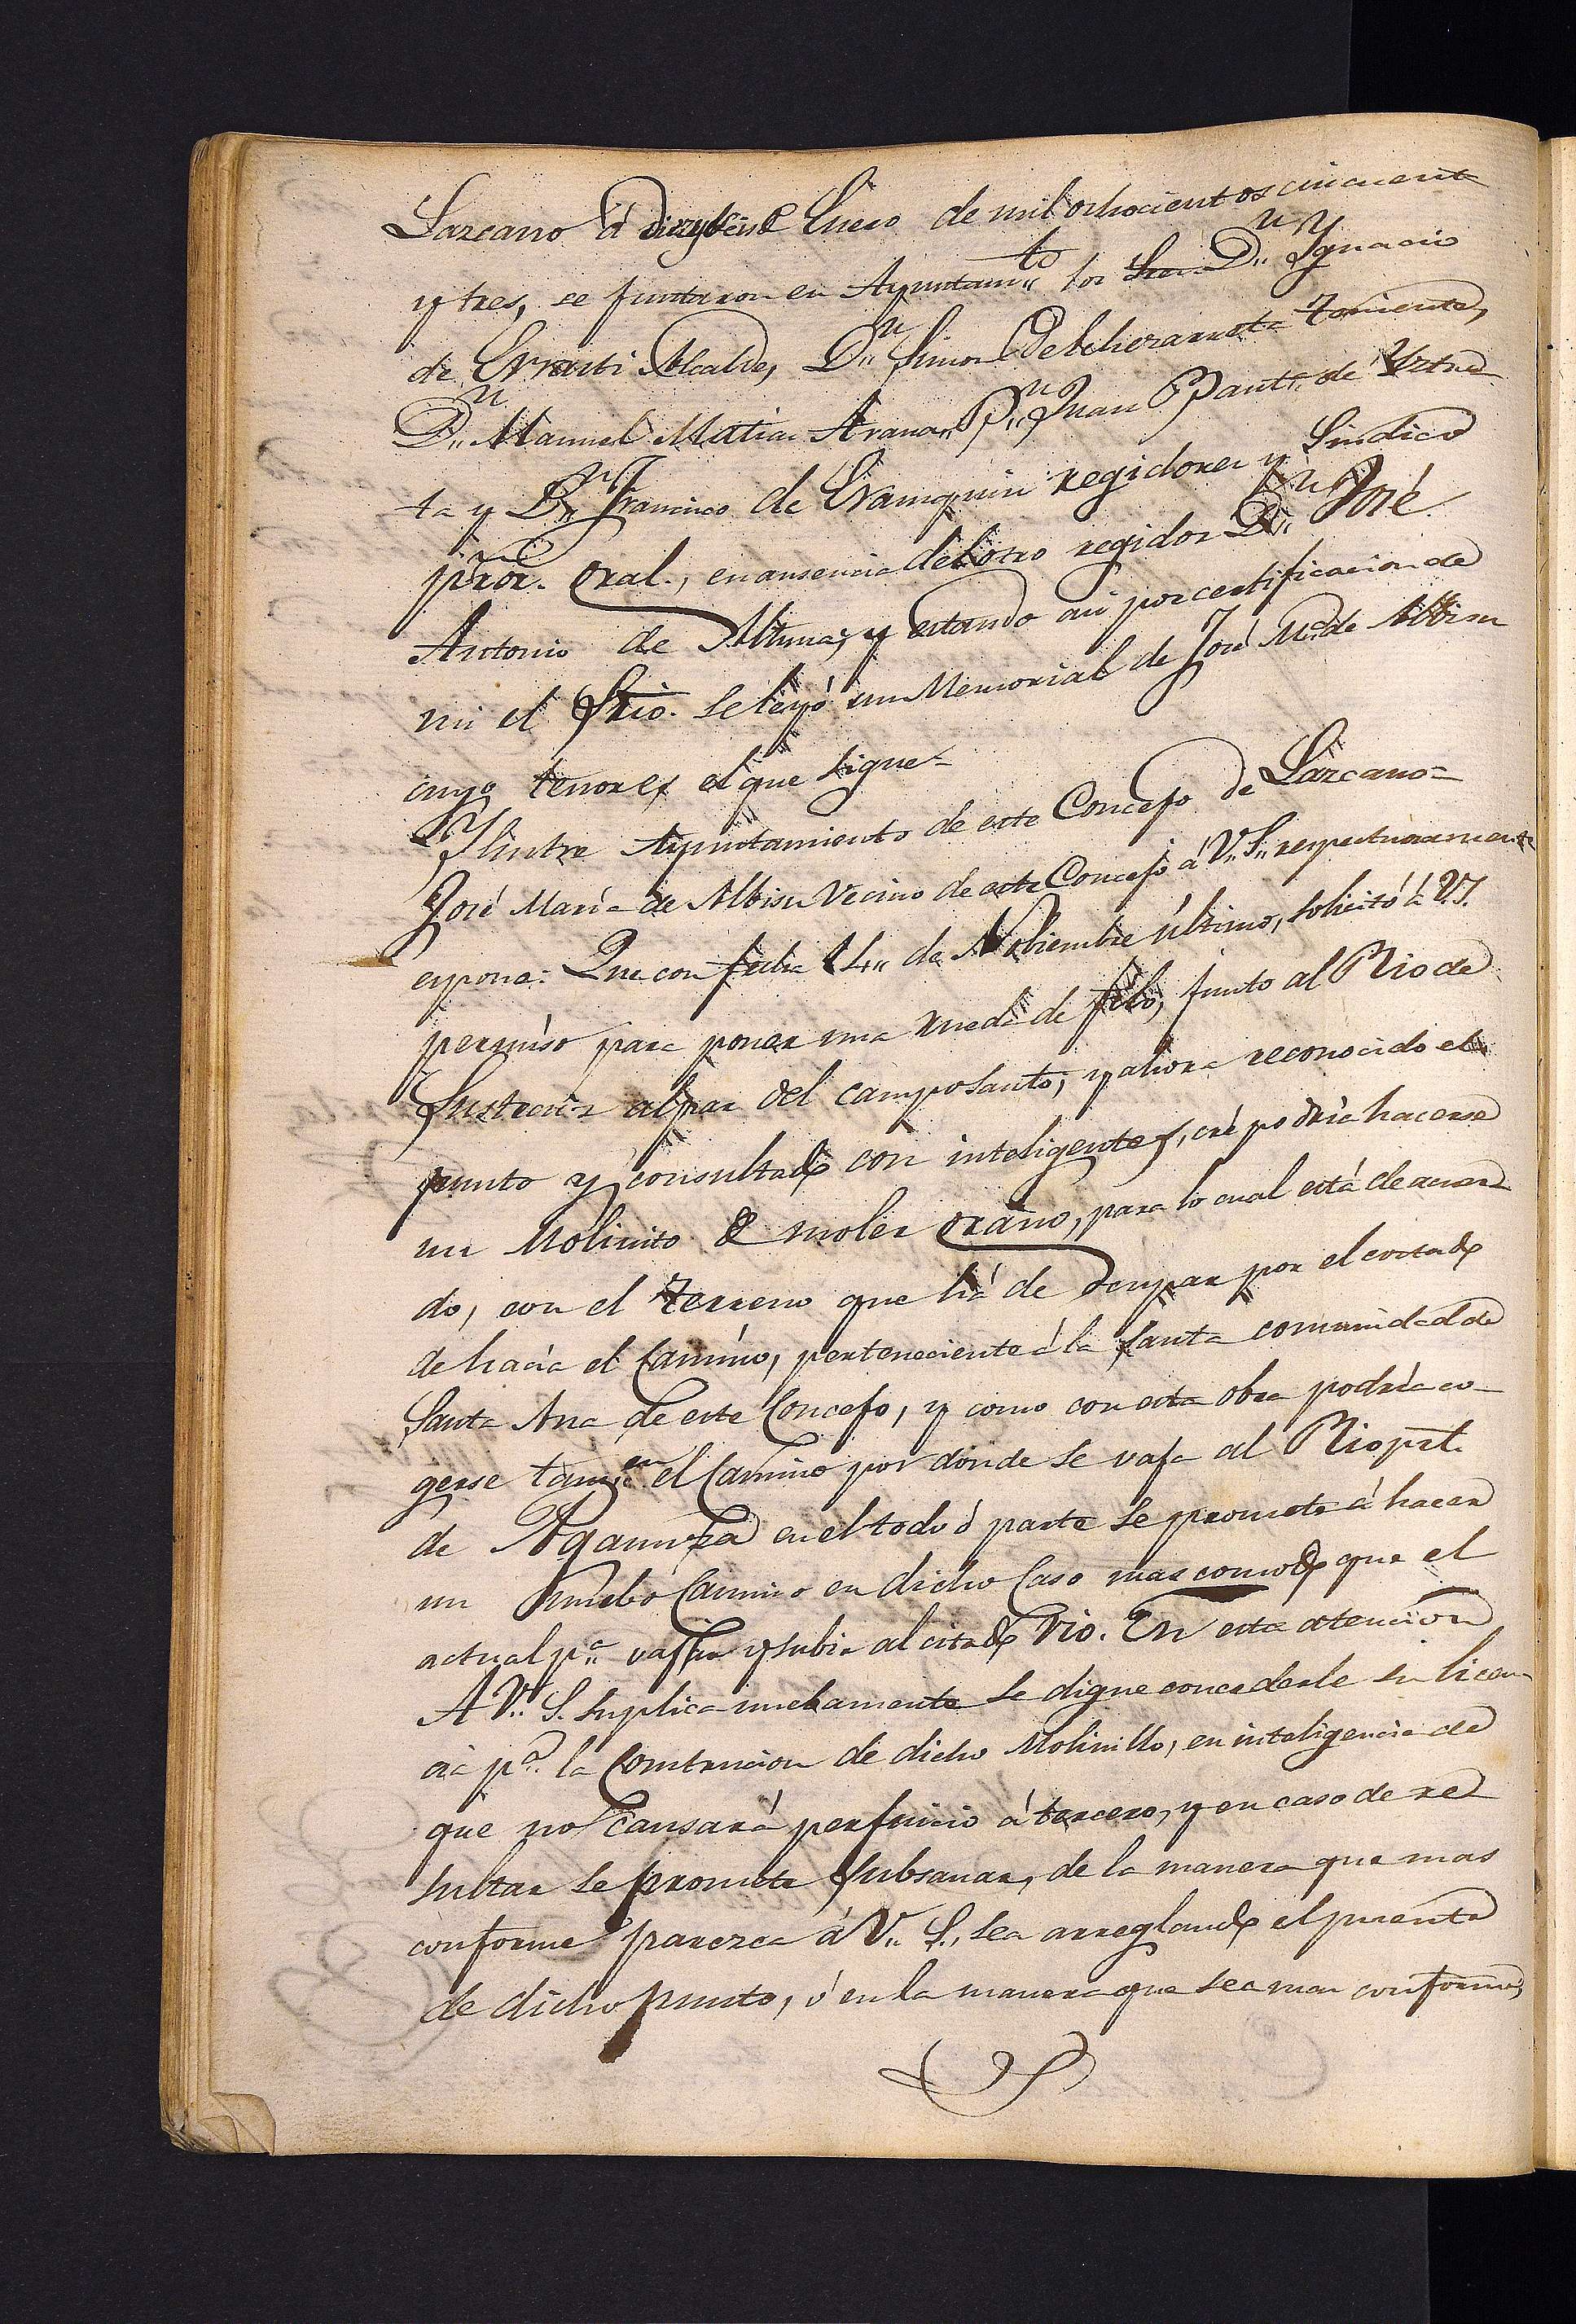 Lazcano á diez y seis de Enero de mil ochocientos cincuenta
y tres, se juntaron en Ayuntam.to los Sres. D.n Ygnacio
de Errasti Alcalde, D.n Simon de Echezarreta Teniente,
D.n Manuel Matias Arana, D.n Juan Baut.a de Urtea
ta y D.n Francisco de Erausquin regidores y Sindico
prõr. gral., en ausencia del otro regidor D.n José
Antonio de Altuna, y estando asi por certificacion de
mi el Srio. se leyó un Memorial de José M.a de Albisu
cuyo tenor es el que sigue=
Ylustre Ayuntamiento de este Concejo de Lazcano=
José Maria de Albisu Vecino de este Concejo á V. S. respetuosamente
espone: Que con fecha 14 de Nobiembre último, solicitó á V.S.
permiso para poner una rueda de filo, junto al Rio de
alpar del campo Santo, y ahora reconocido el
punto y consultado con inteligentes, cré podria hacerse
un Molinito de moler grano, para lo cual está de acuer
do, con el terreno que há de ocupar por el costado
de hacia el Camino, perteneciente á la Santa comunidad de
Santa Ana de este Concejo, y como con esta obra podria co-
gerse tamb.en el Camino por donde se vaja al Rio prl.
de Agaunza en el todo ó parte se promete á hacer
un nuebo Camino en dicho Caso mas comodo que el
actual p.a vajar y subir al citado rio. En esta atencion
A V. S. suplica nuebamente se digne concederle su licen
cia p.a la Construcion de dicho Molinillo, en inteligencia de
que no causará perjuicio á tercero, y en caso de re
sultar se promete subsanar, de la manera que mas
conforme parezca á V. S., sea arreglando el puente
de dicho punto, ó en la manera que sea mas conforme,